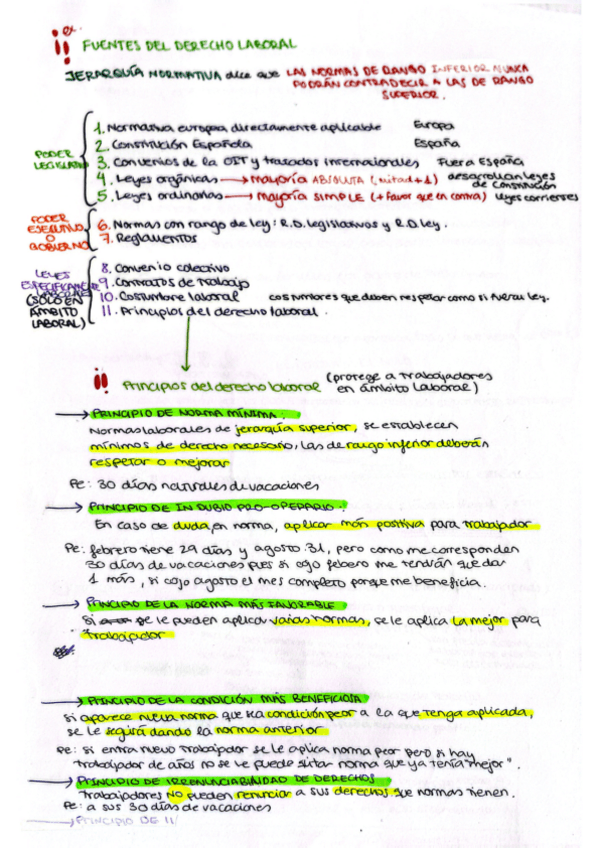 ex
¡¡ FUENTES DEL DERECHO LABORAL
JERARQUÍA NORMATIVA dice que LAS NORMAS DE RANGO INFERIOR NUNCA
PODRÁN CONTRADECIR A LAS DE RANGO
SUPERIOR.
PODER
LEGISLATIVO
1. Normativa europea directamente aplicable Europa
2. Constitución Española España
3. Convenios de la OIT y tratados internacionales Fuera España
4. Leyes orgánicas → Mayoría ABSOLUTA (mitad+1) desarrollan leyes
de constitución
5. Leyes ordinarias → Mayoría SIMPLE (+ favor que en contra) leyes corrientes
PODER
EJECUTIVO
O
GOBIERNO
6. Normas con rango de ley: R.D. legislativos y R.D. ley.
7. Reglamentos
LEYES
(SOLO EN
ÁMBITO
LABORAL)
8. Convenio colectivo
9. Contratos de trabajo
10. Costumbre laboral costumbres que deben respetar como si fueran ley.
11. Principios del derecho laboral.
¡¡ Principios del derecho laboral (protege a trabajadores
en ámbito Laboral)
→ PRINCIPIO DE NORMA MÍNIMA:
Normas laborales de jerarquía superior, se establecen
mínimos de derecho necesario, las de rango inferior deberán
respetar o mejorar
Pe: 30 días naturales de vacaciones
→ PRINCIPIO DE IN DUBIO PRO-OPERARIO:
En caso de duda, en norma, aplicar más positiva para trabajador
Pe: febrero tiene 29 días y agosto 31, pero como me corresponden
30 días de vacaciones pues si cojo febrero me tendrán que dar
1 más, si cojo agosto el mes completo porque me beneficia.
→ PRINCIPIO DE LA NORMA MÁS FAVORABLE
Si se le pueden aplicar varias normas, se le aplica la mejor para
trabajador
→ PRINCIPIO DE LA CONDICIÓN MÁS BENEFICIOSA
Si aparece nueva norma que sea condición peor a la que tenga aplicada,
se le seguirá dando la norma anterior
Pe: si entra nuevo trabajador se le aplica norma peor pero si hay
trabajador de años no se le puede quitar norma que ya tenía "mejor".
→ PRINCIPIO DE IRRENUNCIABILIDAD DE DERECHOS
Trabajadores NO pueden renunciar a sus derechos que normas tienen.
Pe: a sus 30 días de vacaciones
→ PRINCIPIO DE